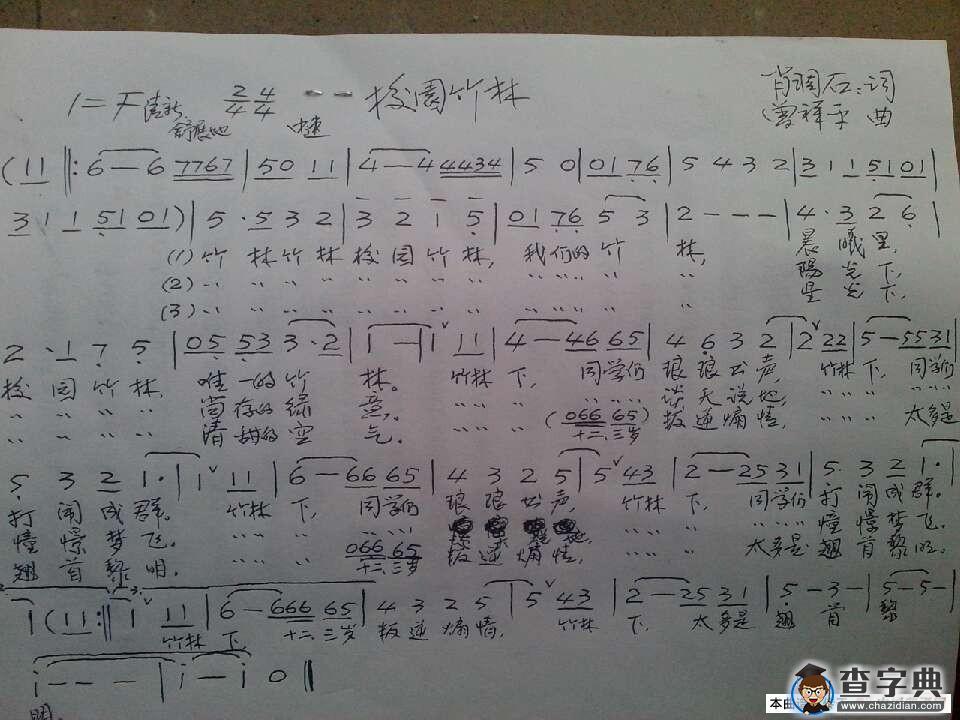 1=F 清新 舒展地 2/4 4/4 中速 -- 校園竹林 肖国石:词
曾祥平 曲
(11 ‖: 6—6 7767 | 50 11 | 4—4 4434 | 5 0 | 01 76 | 5 4 3 2 | 3 1 1 51 01 |
3 1 1 51 01) | 5 · 5 3 2 | 3 2 1 5 | 01 76 5 3 | 2 - - - | 4 · 3 2 6 |
(1) 竹 林 竹 林 校 园 竹 林, 我们的 竹 林, 晨 曦 里,
(2) ‥ ‥ ‥ ‥ ‥ ‥ ‥ ‥ ‥ ‥ ‥ 陽 光 下,
(3) ‥ ‥ ‥ ‥ ‥ ‥ ‥ ‥ ‥ ‥ ‥ 星 光 下,
2 · 1 7 5 | 05 53 3·2 | 1—1 ˅ 11 | 4—46 65 | 4 6 3 2 | 2 ˅ 22 | 5—55 31 |
校 园 竹 林, 唯一的 竹 林。 竹林 下, 同学们 琅 琅 书 声, 竹林 下, 同学们
‥ ‥ ‥ ‥ 尚存的 绿 意, ‥ ‥ ‥ ‥ 谈 天 说 地, ‥ ‥ ‥ ‥
‥ ‥ ‥ ‥ 清甜的 空 气。 ‥ ‥ ‥ (066 65) 叛 逆 煽 情, ‥ ‥ ‥ 太多是
十二、三岁
5 3 2 1· | 1 ˅ 11 | 6—66 65 | 4 3 2 5 | 5 ˅ 43 | 2—25 31 | 5 3 2 1· |
打 闹 成 群。 竹林 下, 同学们 琅 琅 书 声, 竹林 下, 同学们 打 闹 成 群。
憧 憬 梦 飞。 ‥ ‥ ‥ ‥ ‥ ‥ ‥ ‥ 憧 憬 梦 飞。
翘 首 黎 明, ‥ ‥ ‥ 066 65 叛 逆 煽 情, ‥ ‥ ‥ 太多是 翘 首 黎 明。
十二、三岁
1 (11 :‖ 1 ˅ 11 | 6—666 65 | 4 3 2 5 | 5 43 | 2—25 31 | 5 - 3 - | 5 - 5 - |
竹林 下, 十二、三岁 叛 逆 煽 情, 竹林 下, 太多是 翘 首 黎
i - - - | i—i 0 ‖
明。
查字典
www.chazidian.com
本曲